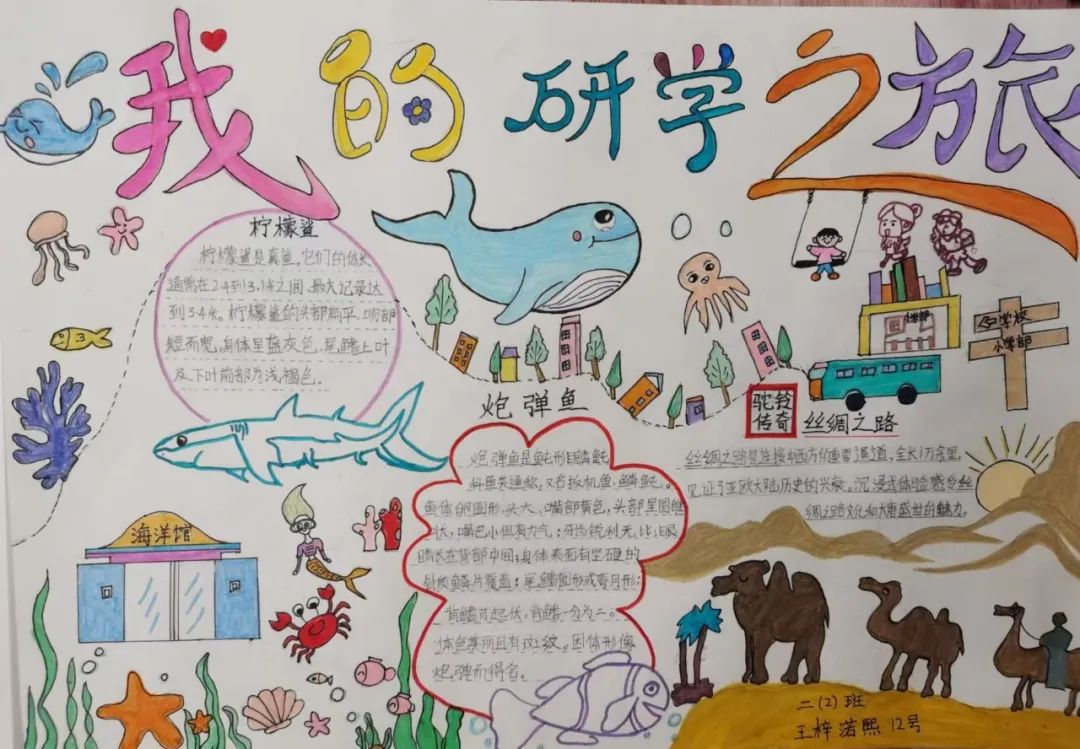 我的研学之旅
柠檬鲨
柠檬鲨是真鲨,它们的体长
通常在2.4到3.1米之间,最大记录达
到3.4米。柠檬鲨的头部扁平,吻部
短而宽,身体呈蓝灰色,尾鳍上叶
及下叶前部为浅褐色。
炮弹鱼
炮弹鱼是鲀形目鳞鲀
科鱼类通称,又名扳机鱼、鳞鲀。
鱼体卵圆形,头大、嘴部黄色,头部呈圆锥
状,嘴巴小但有力气;牙齿锐利无比;眼
睛长在背部中间;身体表面有坚硬的
骨质鳞片覆盖;尾鳍圆形或弯月形;
背鳍可起伏,背鳍一分为二。
体色素丽且有斑纹。因体形像
炮弹而得名。
小学部
学校
小学部
驼铃
传奇
丝绸之路
丝绸之路是连接中西方的重要通道,全长1万余里,
见证了亚欧大陆历史的兴衰。沉浸式体验感受丝
绸之路文化和大唐盛世的魅力。
海洋馆
二(2)班
王梓菡熙 12号